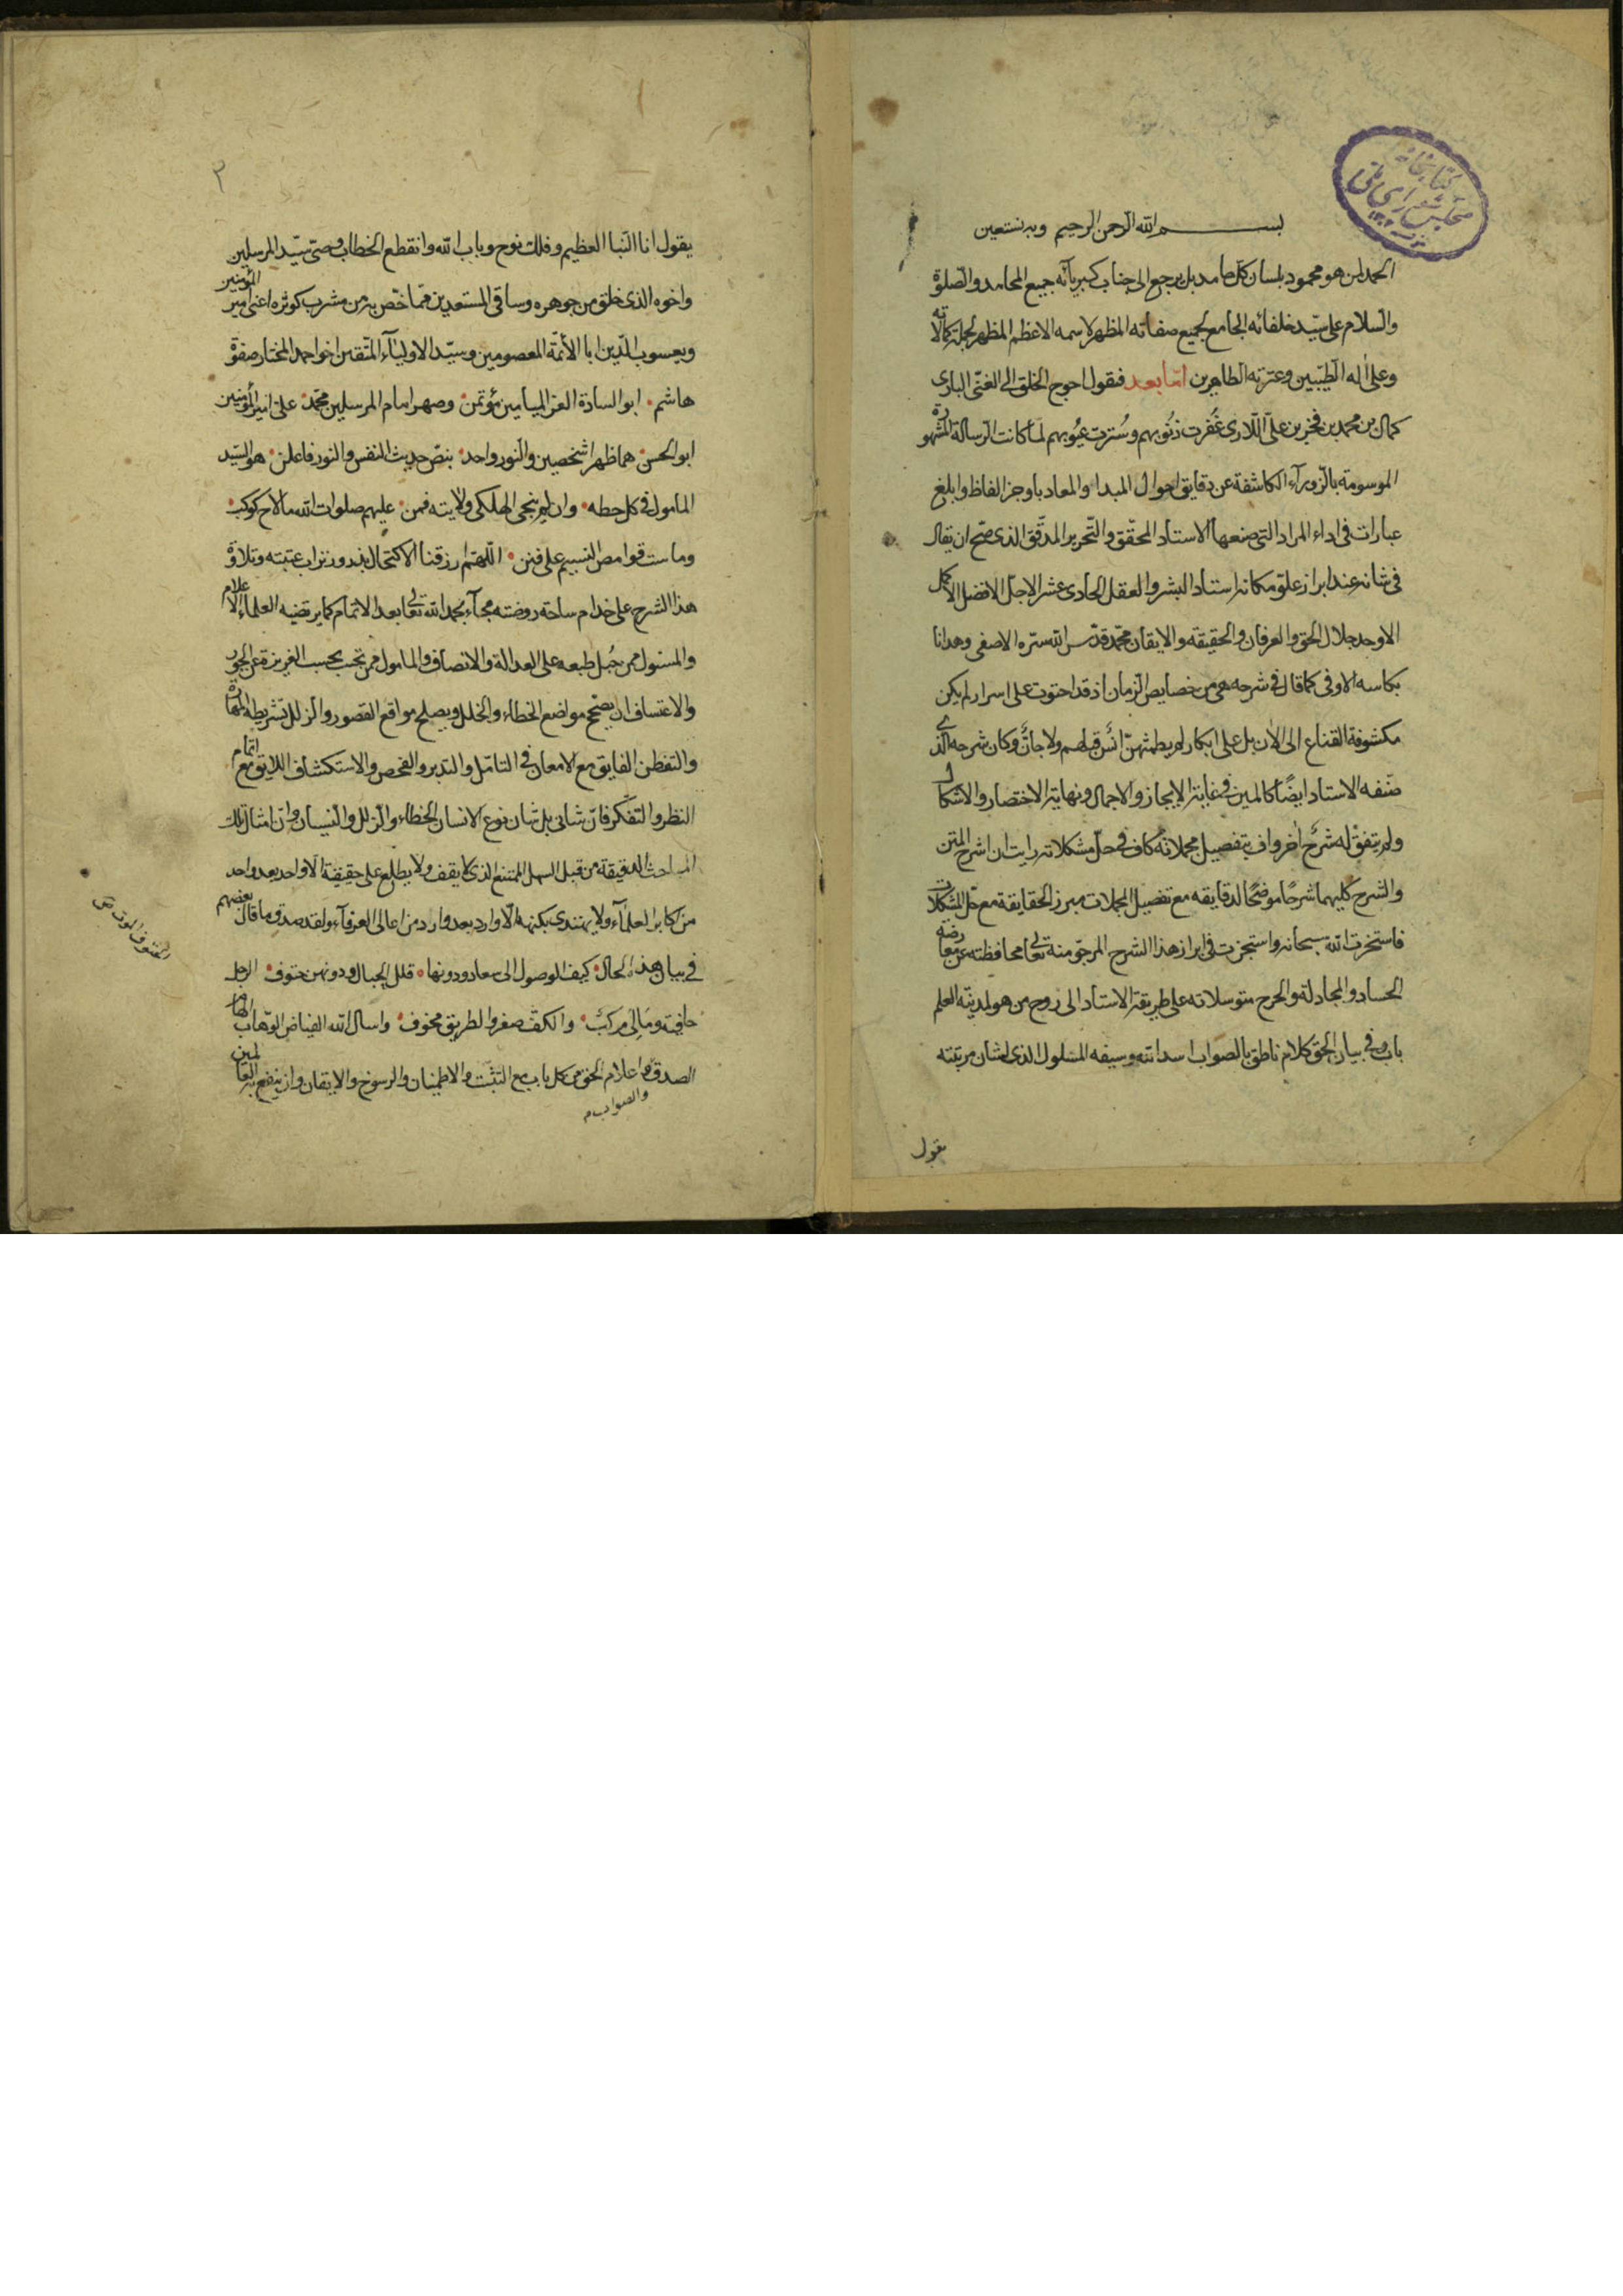 بسم الله الرحمن الرحيم وبه نستعين
الحمد لمن هو محمود بلسان كل حامد بل يرجع الى جناب كبريائه جميع المحامد والصلوة
والسلام على سيد خلفائه الجامع لجميع صفاته المظهر لاسمه الاعظم المظهر لجملة كمالاته
وعلى اله الطيبين وعترته الطاهرين اما بعد فيقول احوج الخلق الى الغنى البارى
كمال بن محمد بن فخر بن على اللارى غفرت ذنوبهم وسترت عيوبهم لما كانت الرسالة المشهورة
الموسومة بالزوراء الكاشفة عن دقايق احوال المبداء والمعاد باوجز الفاظ وابلغ
عبارات فى اداء المراد التى صنعها الاستاد المحقق والنحرير المدقق الذى صح ان يقال
فى شانه عند ابراز علو مكانه استاد البشر والعقل الحادى عشر الاجل الافضل الاكمل
الاوحد جلال الحق والعرفان والحقيقة والايقان محمد قدس الله سره الاصفى وهدانا
بكاسه الاوفى كما قال فى شرحه هى من خصايص الزمان اذ قد احتوت على اسرار لم يكن
مكشوفة القناع الى الان بل على ابكار لم يطمثهن انس قبلهم ولا جان وكان شرحه الذى
صنفه الاستاد ايضا كالمتن فى غاية الايجاز والاجمال ونهاية الاختصار والاشكال
ولم يتفق له شرح اخر واف بتفصيل مجملاته كاف فى حل مشكلاته رايت ان اشرح المتن
والشرح كليهما شرحا موضحا لدقايقه مع تفصيل المجملات مبرز الحقايقه مع حل المشكلات
فاستخرت الله سبحانه واستجزت فى ابراز هذا الشرح المرجو منه تعالى محافظته عن معارضة
الحساد والمجادلة والجرح متوسلا على طريقة الاستاد الى روح من هو لمدينة العلم
باب وفى بيان الحق كلام ناطق بالصواب اسد الله وسيفه المسلول الذى لشان مرتبته
يقول
٢
يقول انا النبا العظيم وفلك نوح وباب الله وانقطع الخطاب وصى سيد المرسلين
واخوه الذى خلق من جوهره وساقى المستعدين مما خص به من مشرب كوثره اعنى امير المؤمنين
ويعسوب الدين ابا الائمة المعصومين وسيد الاولياء المتقين اخو احمد المختار صفوة
هاشم ابو السادة الغر الميامين مؤتمن وصهر امام المرسلين محمد على امير المؤمنين
ابو الحسن هما ظهرا شخصين والنور واحد بنص حديث النفس والنور فاعلن هو السيد
المامول فى كل خطه وان لم ينجى الهلكى ولايته فمن عليهم صلوات الله ما لاح كوكب
وما ست قوامص النسيم على فنن اللهم ارزقنا الاكتحال بذرور تراب عتبته وتلاوة
هذا الشرح على خدام ساحة روضته فجاء بحمد الله تعالى بعد الاتمام كما يرتضيه العلماء الاعلام
والمسئول ممن جبل طبعه على العدالة والانصاف والمامول ممن تجنب بحسب الغريزة عن الجور
والاعتساف ان يصحح مواضع الخطاء والخلل ويصلح مواقع القصور والزلل بشريطة المهارة
والتفطن الفايق مع الامعان فى التامل والتدبر والفحص والاستكشاف اللايق مع اتمام
النظر والتفكر فان شانى بل شان نوع الانسان الخطاء والزلل والنسيان وان امثال تلك
المباحث الدقيقة من قبيل السهل الممتنع الذى لا يقف ولا يطلع على حقيقته الا واحد بعد واحد
من اكابر العلماء ولا يهتدى بكنهه الا وارد بعد وارد من اعالى العرفاء ولقد صدق ما قال بعضهم
فى بيان هذه الحال كيف الوصول الى سعاد ودونها قلل الجبال ودونهن حتوف الرجل
حافية ومالى مركب والكف صفر والطريق مخوف واسال الله الفياض الوهاب الهام
الصدق واعلام الحق من كل باب مع التثبت والاطمينان والرسوخ والايقان وان ينفع به الطالبين
والصواب م